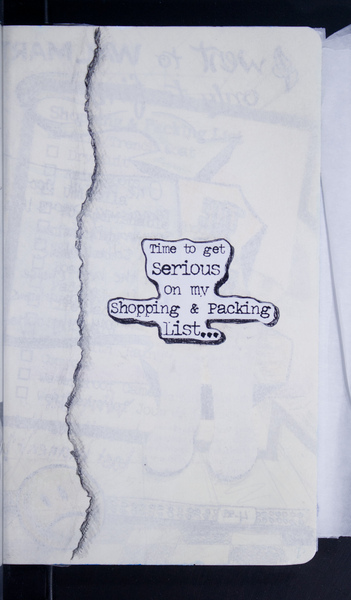 Time to get
Serious
on my
Shopping & Packing
List...